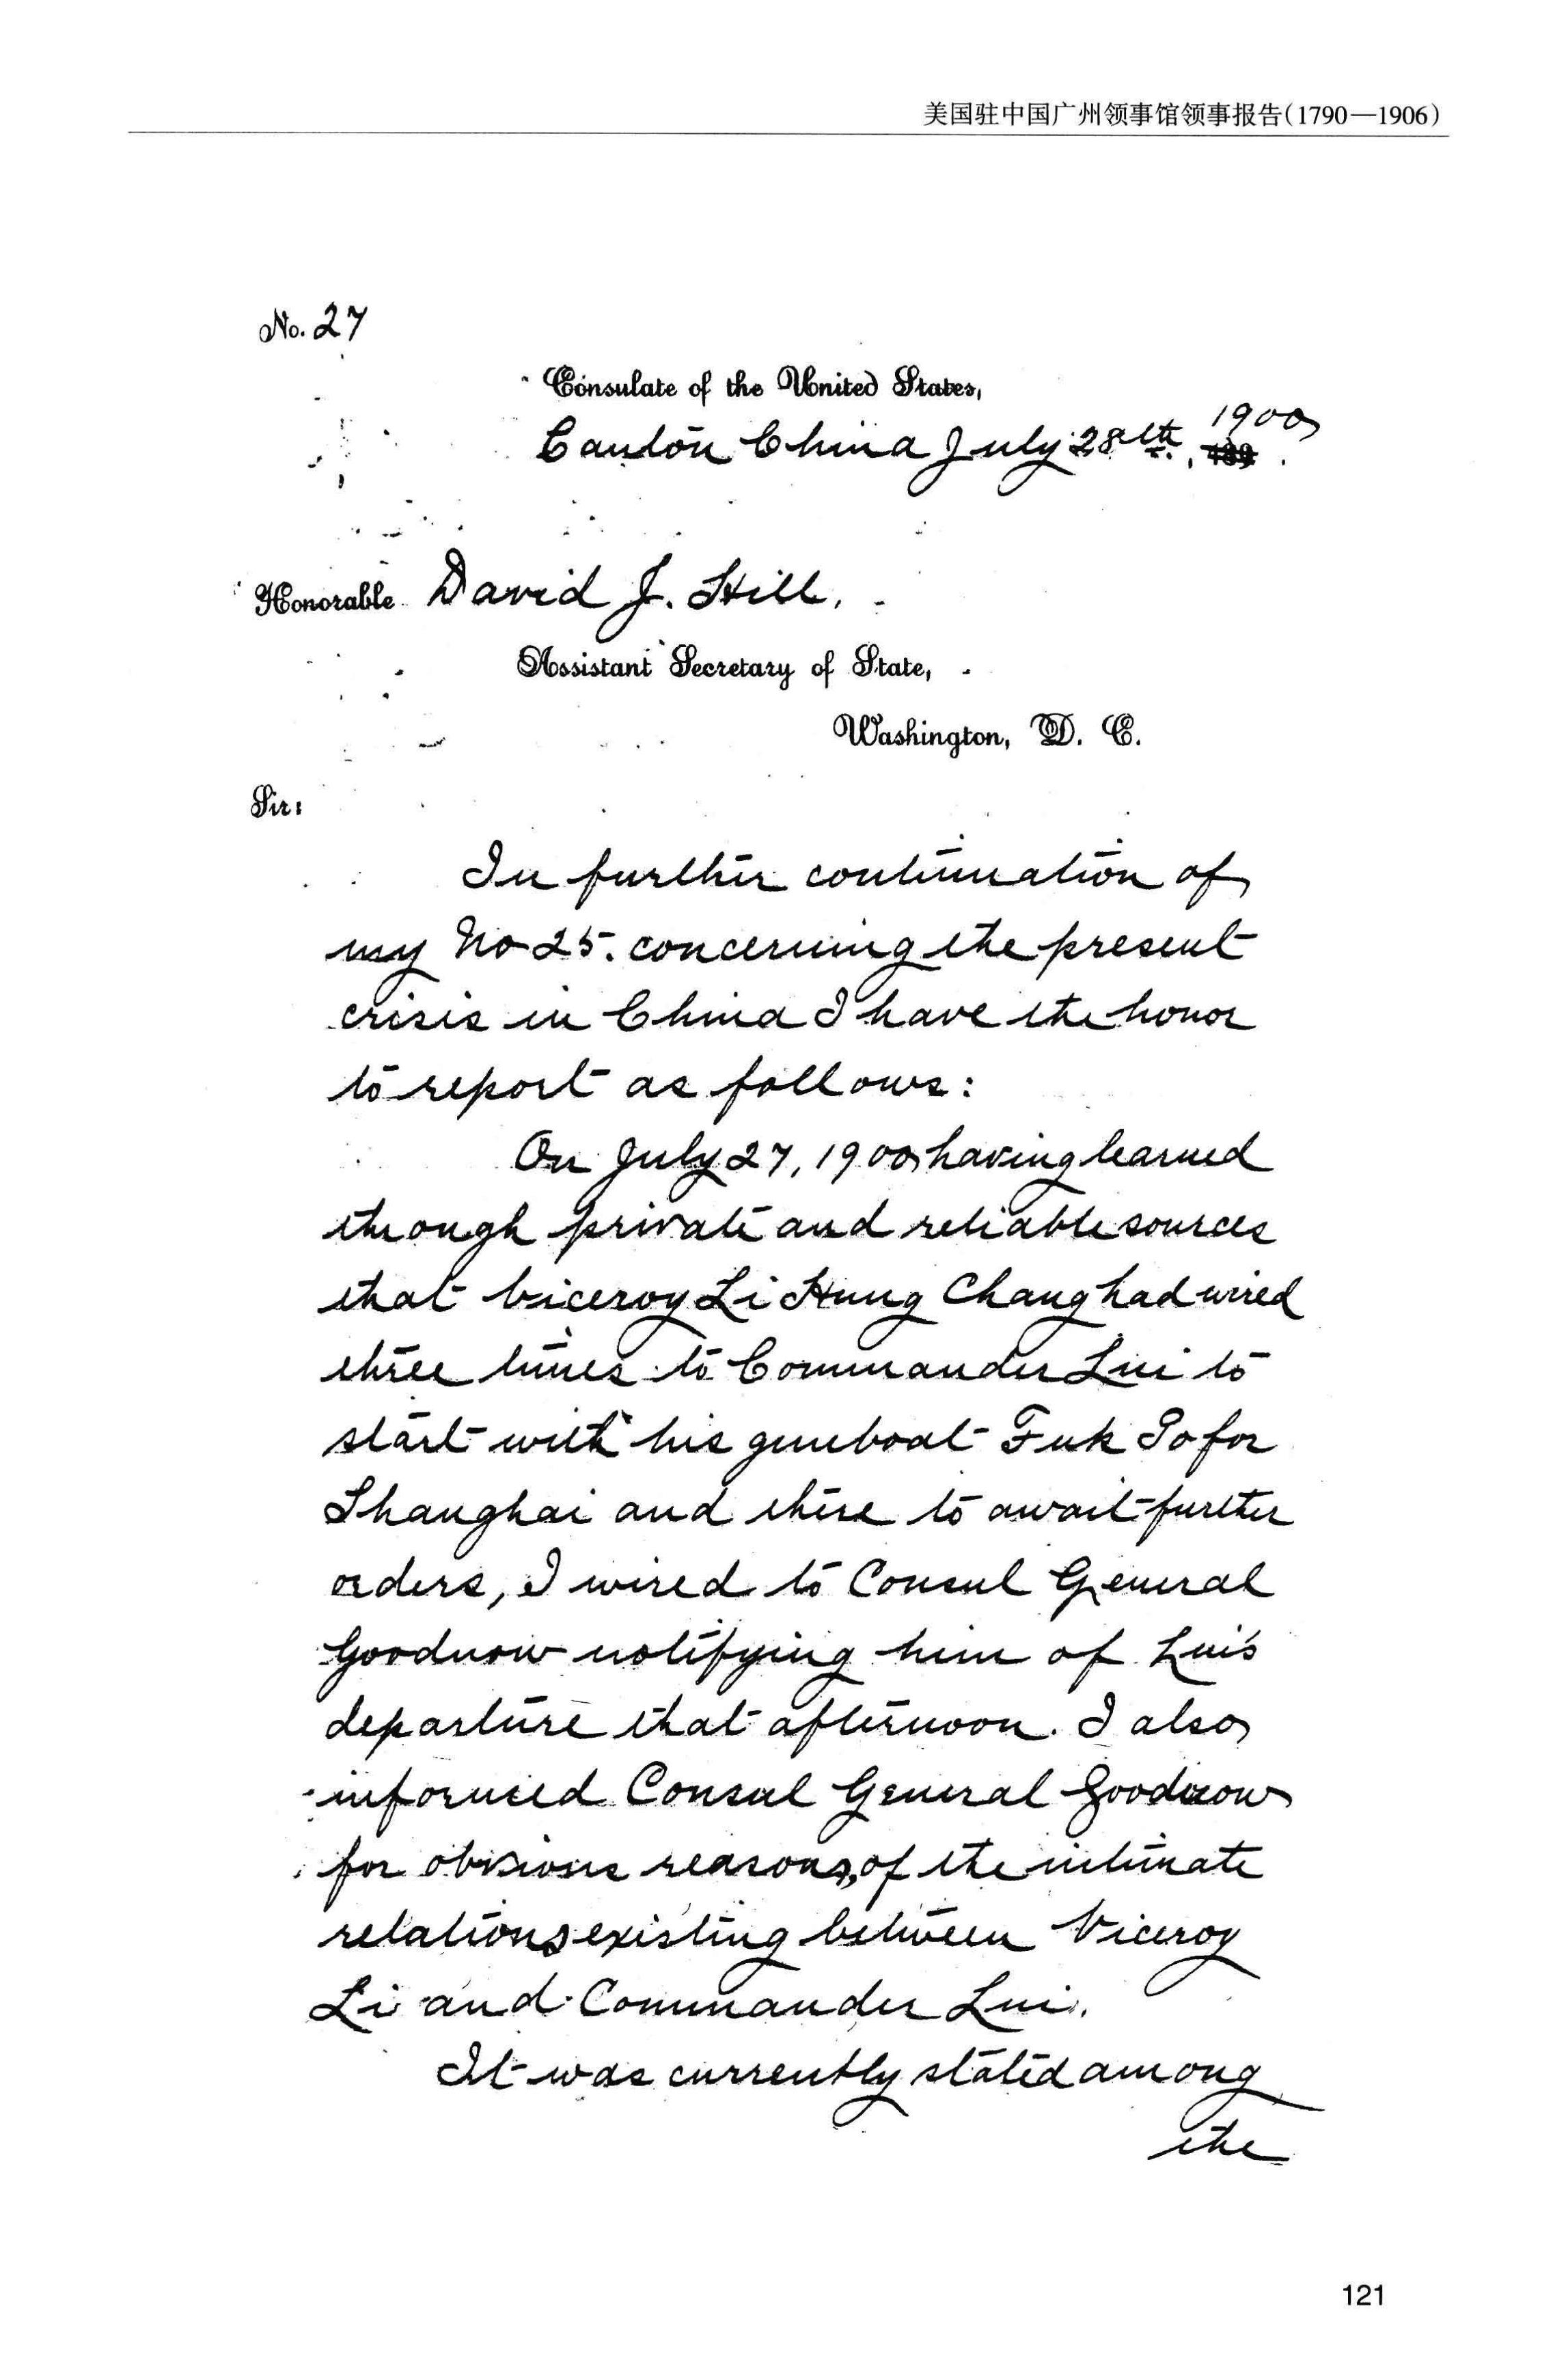 美国驻中国广州领事馆领事报告(1790—1906)
No. 27
Consulate of the United States,
Canton China July 28th, 1900
189 .
Honorable David J. Hill,
Assistant Secretary of State,
Washington, D. C.
Sir:
In further continuation of
my No 25. concerning the present
crisis in China I have the honor
to report as follows:
On July 27, 1900 having learned
through private and reliable sources
that Viceroy Li Hung Chang had wired
three times to Commander Lui to
start with his gunboat Fuk Po for
Shanghai and there to await further
orders, I wired to Consul General
Goodnow notifying him of Lui's
departure that afternoon. I also
informed Consul General Goodnow
for obvious reasons, of the intimate
relations existing between Viceroy
Li and Commander Lui.
It was currently stated among
the
121